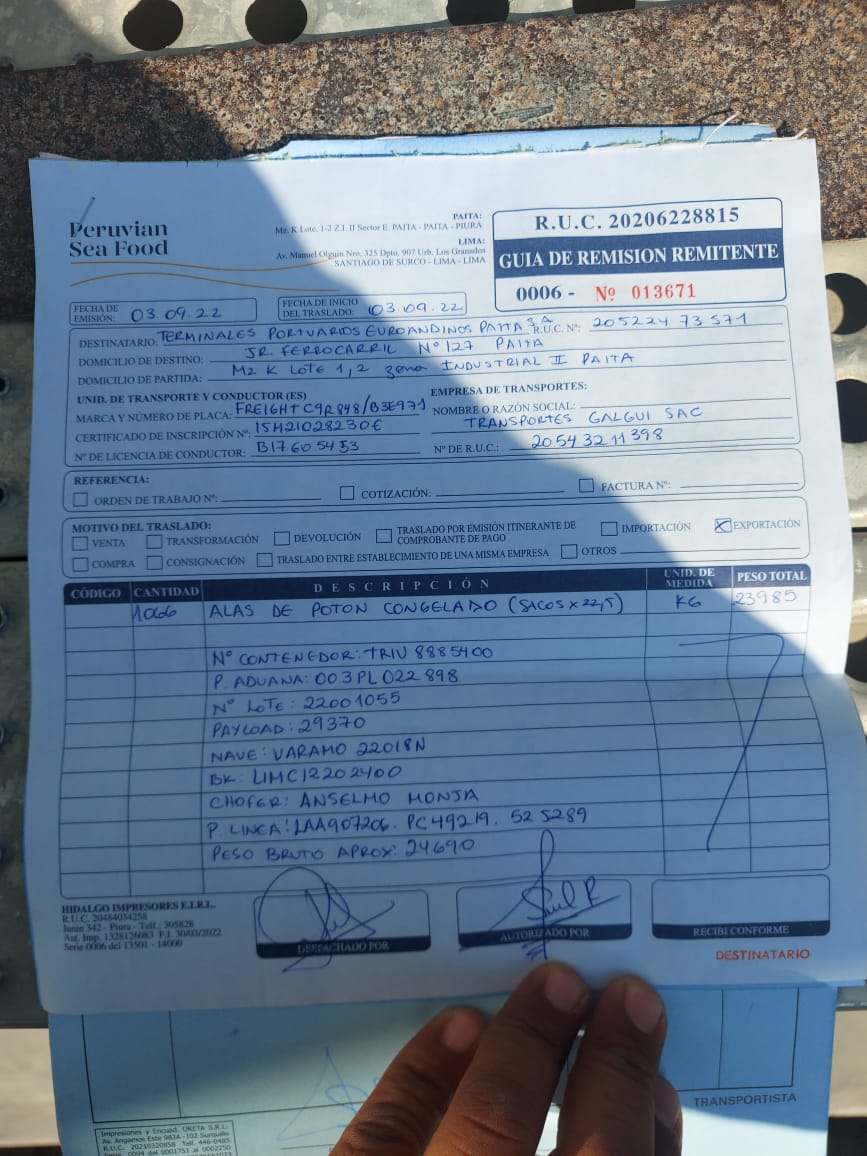 Peruvian
Sea Food
PAITA:
Mz. K Lote. 1-2 Z.I. II Sector E PAITA - PAITA - PIURA
LIMA:
Av. Manuel Olguin Nro. 325 Dpto. 907 Urb. Los Granados
SANTIAGO DE SURCO - LIMA - LIMA
R.U.C. 20206228815
GUIA DE REMISION REMITENTE
0006 - Nº 013671
FECHA DE EMISIÓN: 03.09.22
FECHA DE INICIO DEL TRASLADO: 03.09.22
DESTINATARIO: TERMINALES PORTUARIOS EUROANDINOS PAITA SA R.U.C. Nº: 20522473571
DOMICILIO DE DESTINO: JR. FERROCARRIL Nº 127 PAITA
DOMICILIO DE PARTIDA: Mz K LOTE 1,2 zona INDUSTRIAL II PAITA
UNID. DE TRANSPORTE Y CONDUCTOR (ES)
MARCA Y NÚMERO DE PLACA: FREIGHT C9R848/B3E971
CERTIFICADO DE INSCRIPCIÓN Nº: 15M21028230E
Nº DE LICENCIA DE CONDUCTOR: B17605453
EMPRESA DE TRANSPORTES:
NOMBRE O RAZÓN SOCIAL:
TRANSPORTES GALGUI SAC
Nº DE R.U.C.: 20543211398
REFERENCIA:
ORDEN DE TRABAJO Nº: COTIZACIÓN: FACTURA Nº:
MOTIVO DEL TRASLADO:
VENTA TRANSFORMACIÓN DEVOLUCIÓN TRASLADO POR EMISIÓN ITINERANTE DE COMPROBANTE DE PAGO IMPORTACIÓN EXPORTACIÓN
COMPRA CONSIGNACIÓN TRASLADO ENTRE ESTABLECIMIENTO DE UNA MISMA EMPRESA OTROS
CÓDIGO CANTIDAD DESCRIPCIÓN UNID. DE MEDIDA PESO TOTAL
1066 ALAS DE POTON CONGELADO (SACOS X 22,5) KG 23985
Nº CONTENEDOR: TRIU 8885400
P. ADUANA: 003PL022898
Nº LOTE: 22001055
PAYLOAD: 29370
NAVE: VARAMO 22018N
BK: LIMC12202400
CHOFER: ANSELMO MONJA
P. LINEA: LAA907206. PC49219. 525289
PESO BRUTO APROX: 24690
HIDALGO IMPRESORES E.I.R.L.
R.U.C. 20484034258
Junin 342 - Piura - Telf.: 305828
Aut. Imp. 1328126083 F.I. 30/03/2022
Serie 0006 del 13501 - 14000
DESPACHADO POR
Saul R
AUTORIZADO POR
RECIBI CONFORME
DESTINATARIO
TRANSPORTISTA
Impresiones y Encuad. URETA S.R.L.
Av. Angamos Este 983A -102 Surquillo
R.U.C. 20210320858 Telf. 446-0485
Serie 0004 del 0001751 al 0002250